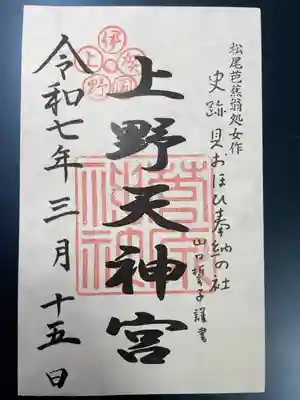 松尾芭蕉翁処女作
史跡 貝おほひ奉納の社
山口誓子謹書
上野天神宮
伊賀国上野
菅原神社
令和七年三月十五日